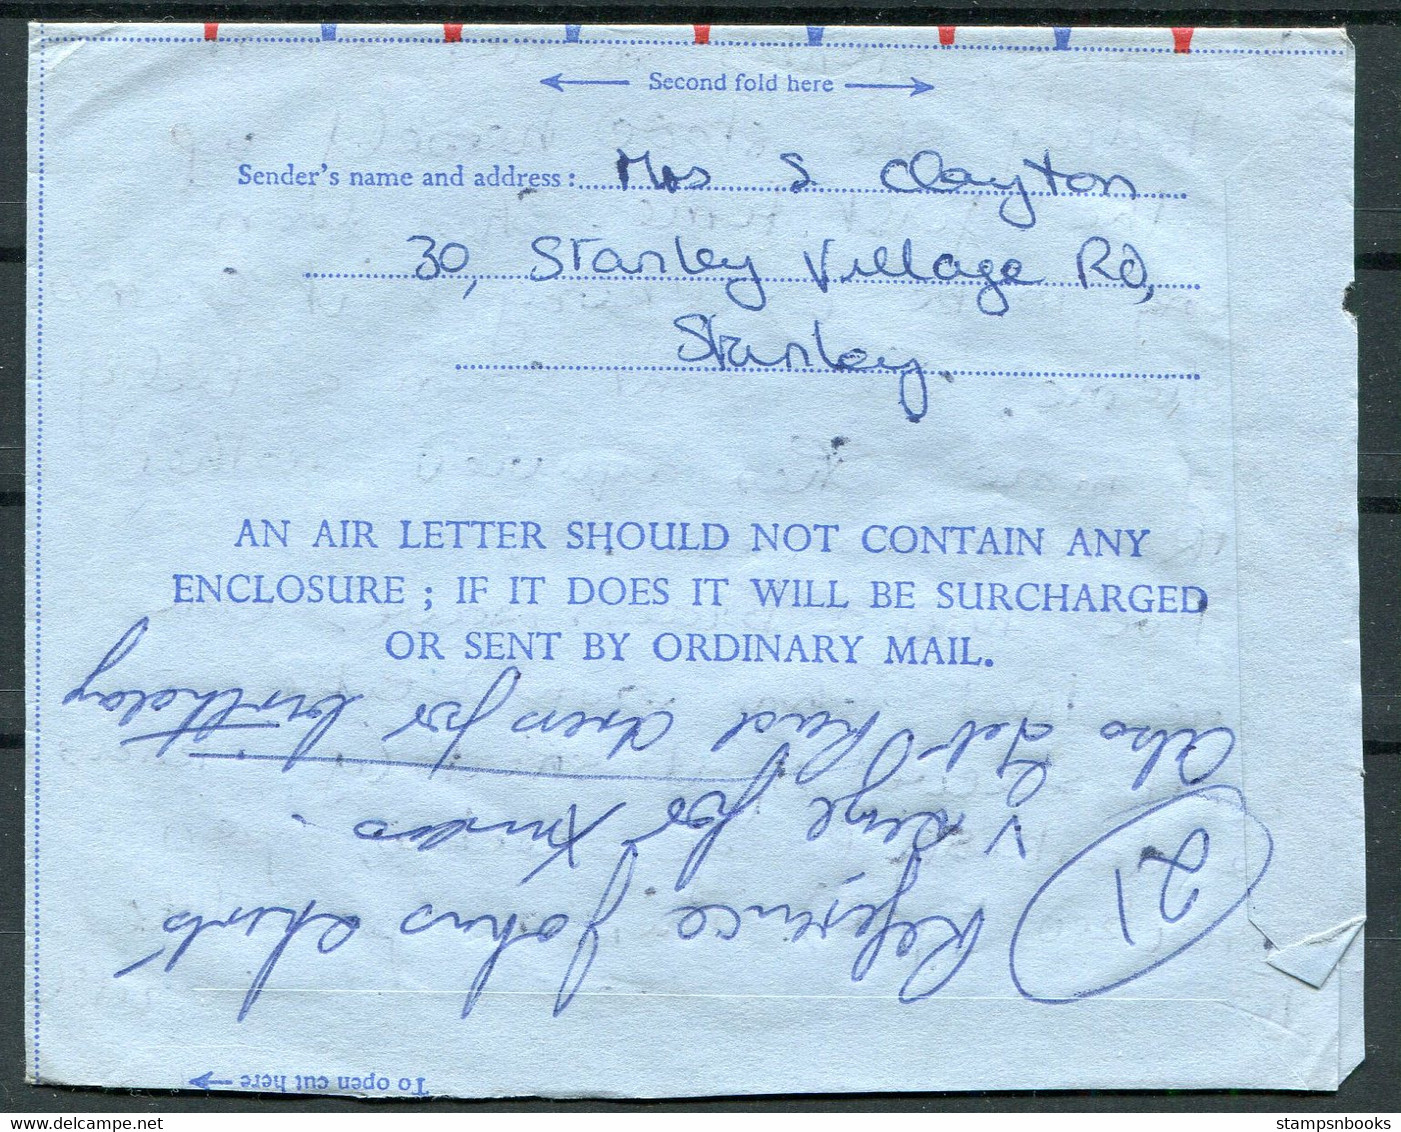 Second fold here
Sender's name and address: Mrs S Clayton
30, Stanley Village Rd,
Stanley
AN AIR LETTER SHOULD NOT CONTAIN ANY
ENCLOSURE ; IF IT DOES IT WILL BE SURCHARGED
OR SENT BY ORDINARY MAIL.
To open cut here
21 Reference Johns shirts
for Xmas.
Also had for birthday
stampsnbooks